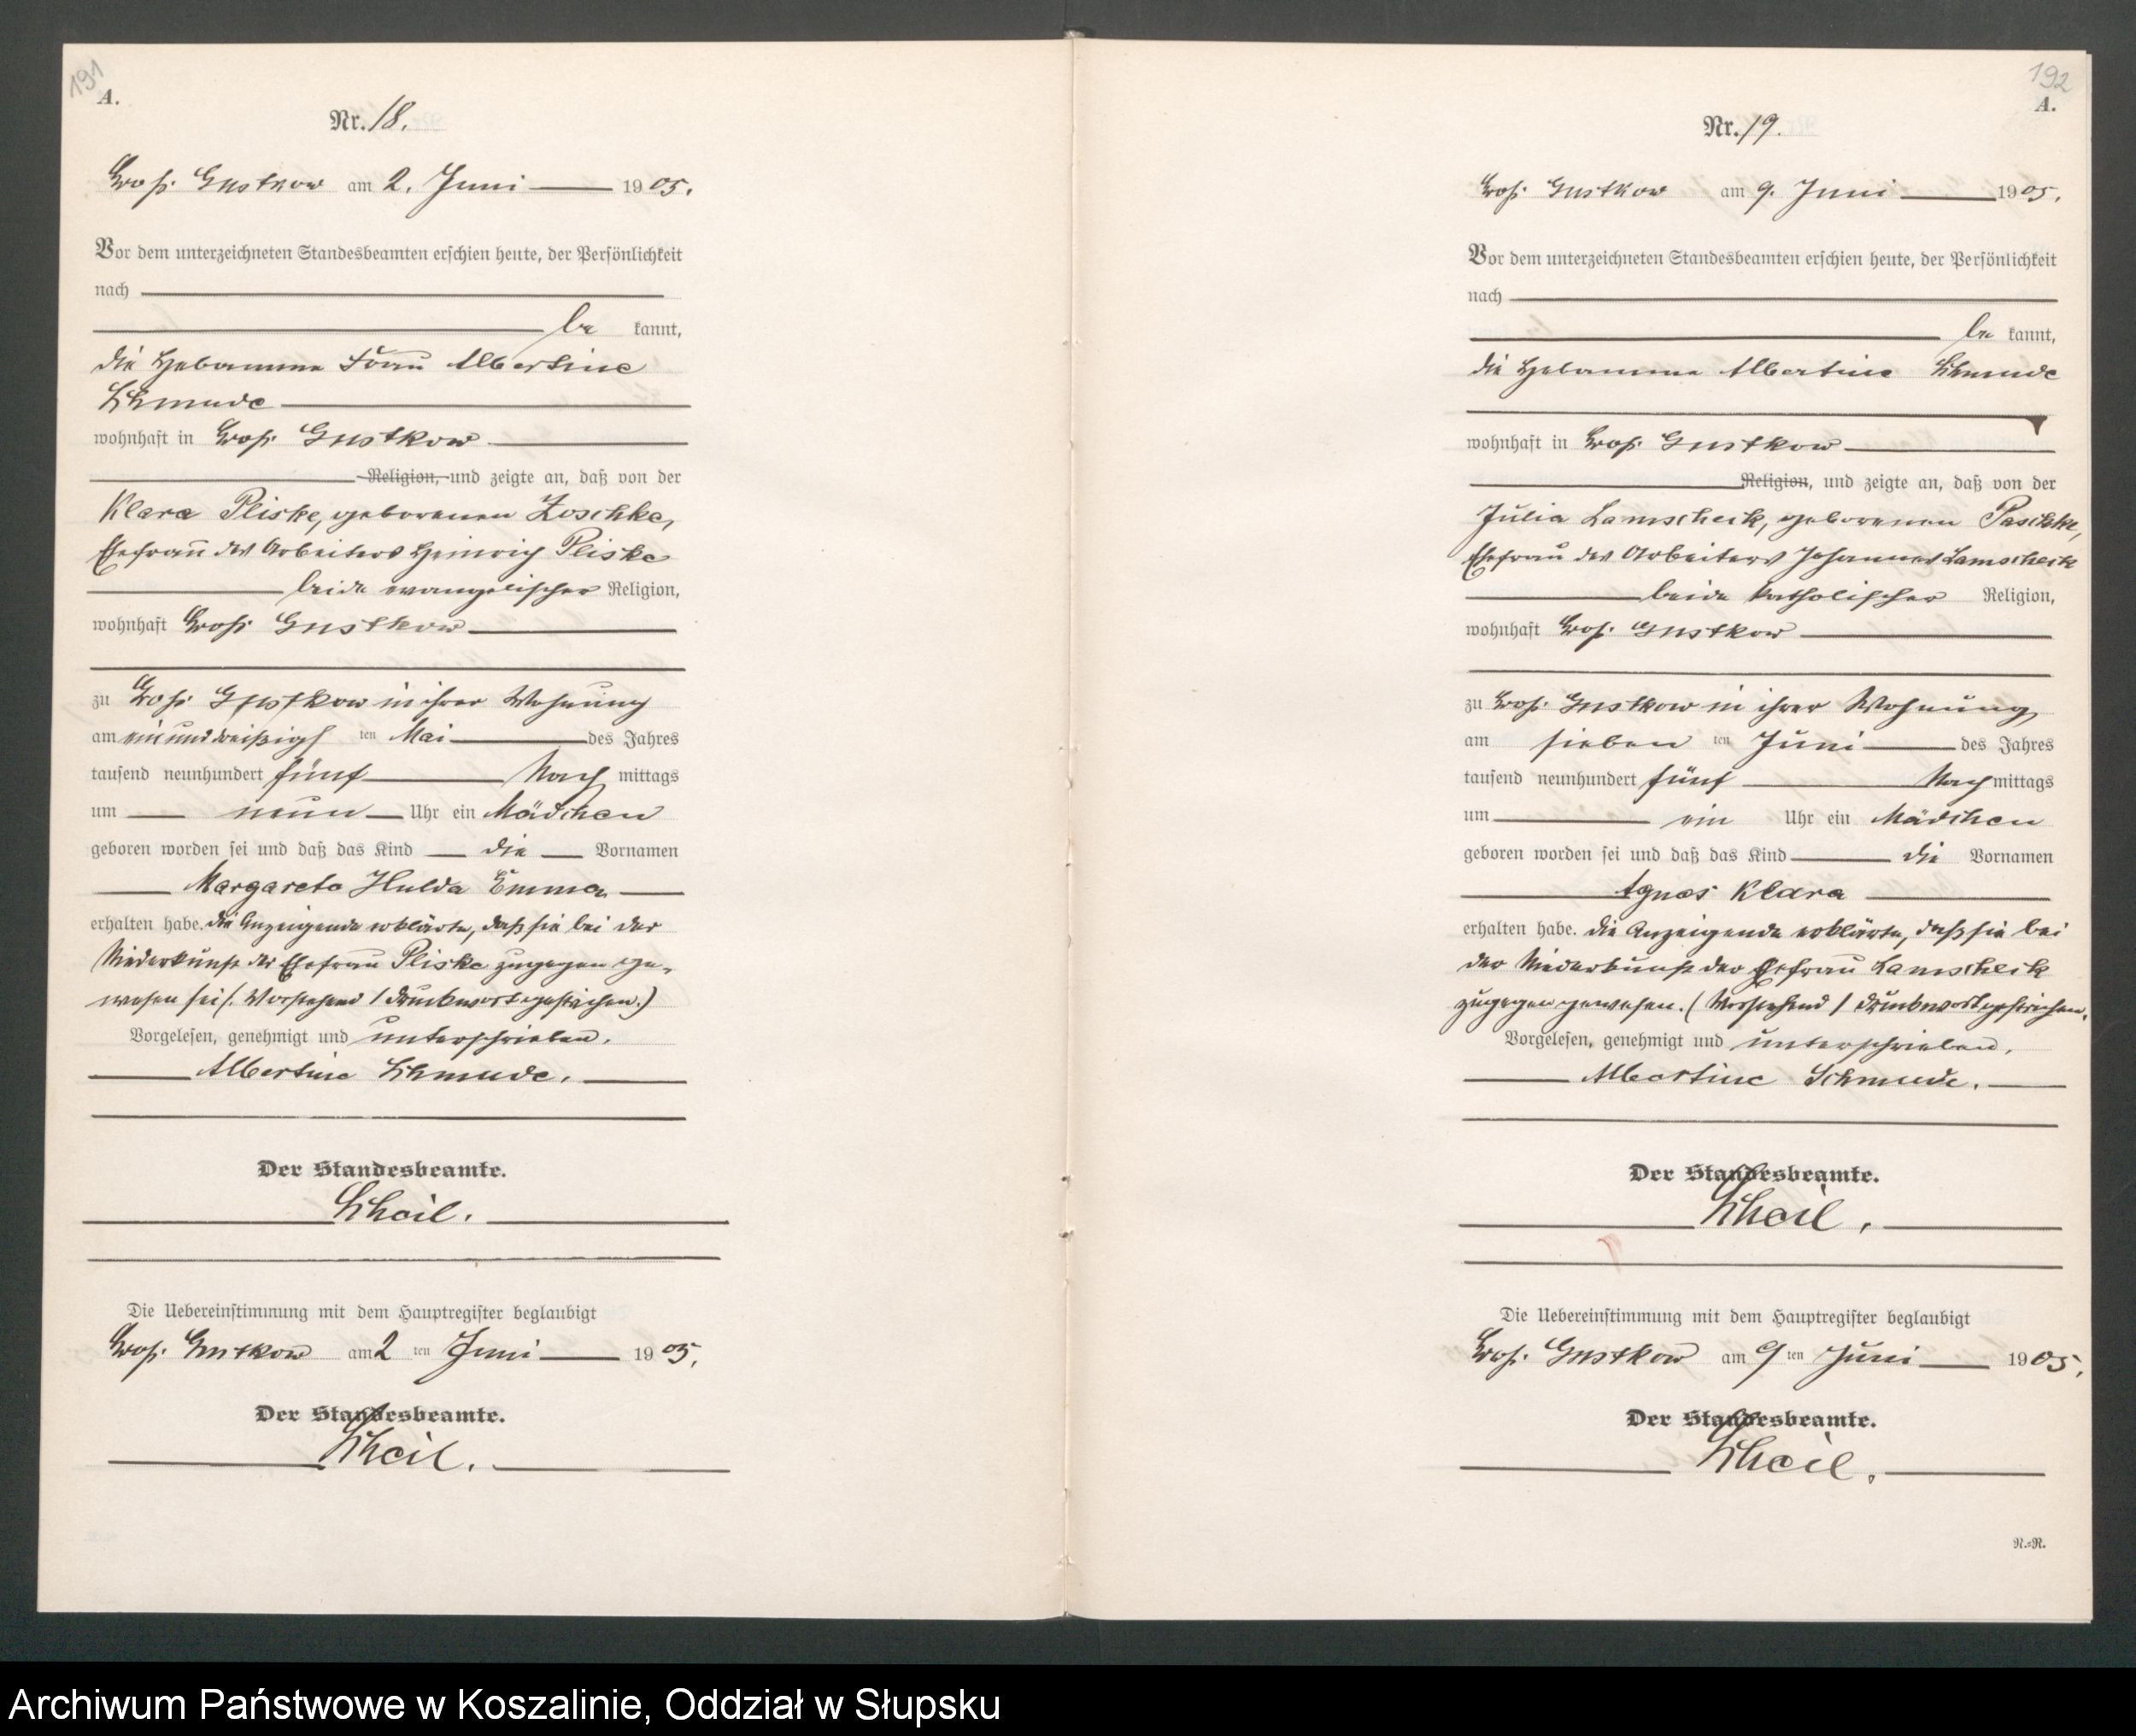 191
A.
Nr. 18.
Groß Gustkow am 2. Juni 1905.
Vor dem unterzeichneten Standesbeamten erschien heute, der Persönlichkeit
nach
be kannt,
die Hebamme Frau Albertine
Schmude
wohnhaft in Groß Gustkow
Religion, und zeigte an, daß von der
Klara Pliske, geborenen Zoschke,
Ehefrau des Arbeiters Heinrich Pliske
beide evangelischer Religion,
wohnhaft Groß Gustkow
zu Groß Gustkow in ihrer Wohnung
am einunddreißigs ten Mai des Jahres
tausend neunhundert fünf Nach mittags
um neun Uhr ein Mädchen
geboren worden sei und daß das Kind die Vornamen
Margarete Hulda Emma
erhalten habe. Die Anzeigende erklärte, daß sie bei der
Niederkunft der Ehefrau Pliske zugegen ge-
wesen sei (. Vorstehend 1 Druckwort gestrichen.)
Vorgelesen, genehmigt und unterschrieben.
Albertine Schmude.
Der Standesbeamte.
Scheil.
Die Uebereinstimmung mit dem Hauptregister beglaubigt
Groß Gustkow am 2 ten Juni 1905.
Der Standesbeamte.
Scheil.
192
A.
Nr. 19.
Groß Gustkow am 9. Juni 1905.
Vor dem unterzeichneten Standesbeamten erschien heute, der Persönlichkeit
nach
be kannt,
die Hebamme Albertine Schmude
wohnhaft in Groß Gustkow
Religion, und zeigte an, daß von der
Julia Lamscheik, geborenen
Ehefrau des Arbeiters Johannes Lamscheik
beide katholischer Religion,
wohnhaft Groß Gustkow
zu Groß Gustkow in ihrer Wohnung
am sieben ten Juni des Jahres
tausend neunhundert fünf Nach mittags
um ein Uhr ein Mädchen
geboren worden sei und daß das Kind die Vornamen
Agnes Klara
erhalten habe. Die Anzeigende erklärte, daß sie bei
der Niederkunft der Ehefrau Lamscheik
zugegen gewesen. (Vorstehend 1 Druckwort gestrichen.
Vorgelesen, genehmigt und unterschrieben.
Albertine Schmude.
Der Standesbeamte.
Scheil.
Die Uebereinstimmung mit dem Hauptregister beglaubigt
Groß Gustkow am 9 ten Juni 1905.
Der Standesbeamte.
Scheil.
N.=N.
Archiwum Państwowe w Koszalinie, Oddział w Słupsku